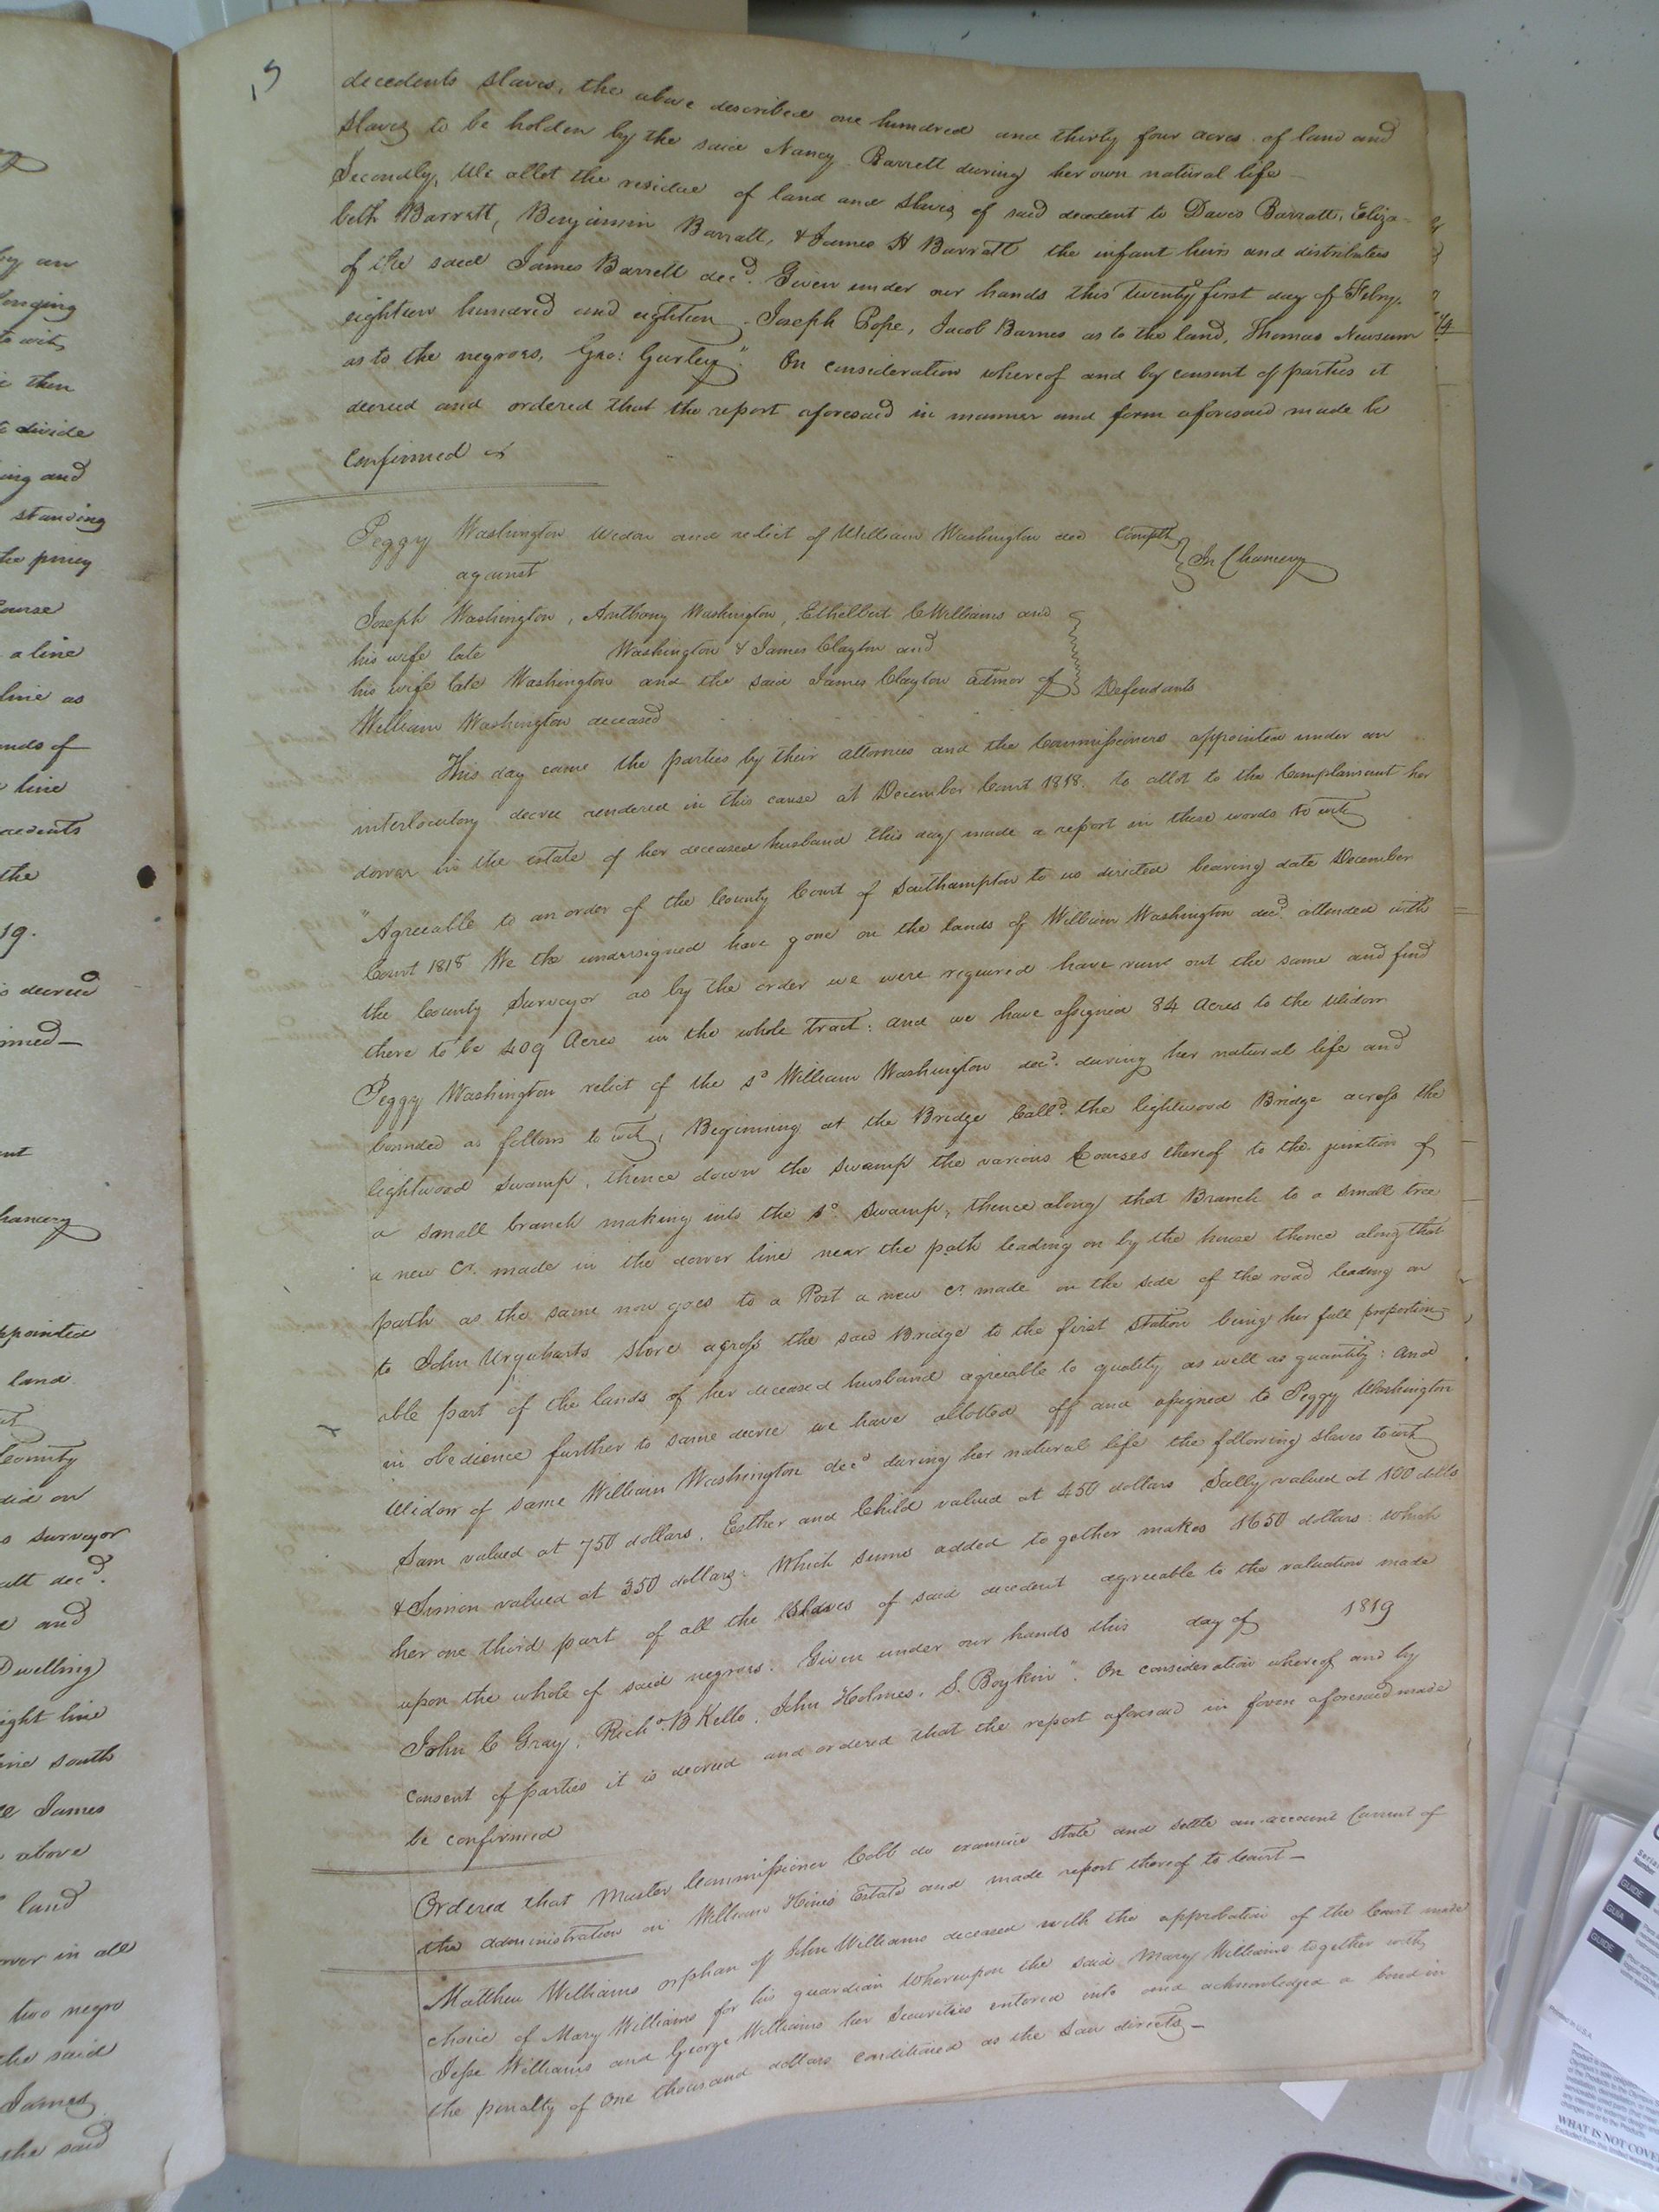 decedents slaves, the above described one hundred and thirty four acres of land and
slaves to be holden by the said Nancy Barrett during her own natural life —
Secondly, We allot the residue of land and slaves of said decedent to Davis Barratt, Eliza-
beth Barratt, Benjamin Barratt, & James H Barratt the infant heirs and distributees
of the said James Barrett decd. Given under our hands this twenty first day of Febry.
eighteen hundred and eighteen. Joseph Pope, Jacob Barnes as to the land, Thomas Newsum
as to the negroes, Geo: Gurley". On consideration whereof and by consent of parties it
decreed and ordered that the report aforesaid in manner and form aforesaid made be
confirmed
Peggy Washington Widow and relict of William Washington decd Complt
In Chancery
against
Joseph Washington, Anthony Washington, Ethelbert C Williams and
his wife late Washington & James Clayton and
his wife late Washington and the said James Clayton admor of
Defendants
William Washington deceased
This day came the parties by their attornies and the Commissioners appointed under an
interlocutory decree rendered in this cause at December Court 1818. to allot to the Complainant her
dower in the estate of her deceased husband this day made a report in these words to wit
"Agreeable to an order of the County Court of Southampton to us directed bearing date December
Court 1818 We the undersigned have gone on the lands of William Washington decd. attended with
the County Surveyor as by the order we were required have run out the same and find
there to be 409 Acres in the whole tract: and we have assigned 84 Acres to the Widow
Peggy Washington relict of the sd William Washington decd. during her natural life and
bounded as follows to wit, Beginning at the Bridge Calld. the lightwood Bridge across the
lightwood Swamp, thence down the swamp the various Courses thereof to the junction of
a small branch making into the sd. Swamp, thence along that Branch to a small tree
a new Cr. made in the dower line near the path leading on by the house thence along that
path as the same now goes to a Post a new Cr. made on the side of the road leading on
to John Urquharts store across the said Bridge to the first station being her full proportion
able part of the lands of her deceased husband agreeable to quality as well as quantity: And
in obedience further to same decree we have allotted off and assigned to Peggy Washington
Widow of same William Washington decd during her natural life the following slaves to wit
Sam valued at 750 dollars, Esther and Child valued at 450 dollars Sally valued at 100 dolls
& Simon valued at 350 dollars: Which sums added to gether makes 1650 dollars: which
her one third part of all the slaves of said decedent agreeable to the valuation made
upon the whole of said negroes. Given under our hands this day of 1819
John C Gray, Richd. B Kello, John Holmes, S. Boykin". On consideration whereof and by
consent of parties it is decreed and ordered that the report aforesaid in form aforesaid made
be confirmed
Ordered that Master Commissioner Cobb do examine state and settle an account Current of
the administration on William Hines Estate and made report thereof to Court —
Matthew Williams orphan of John Williams deceased with the approbation of the Court made
choice of Mary Williams for his guardian Whereupon the said Mary Williams together with
Jesse Williams and George Williams her Securities entered into and acknowledged a bond in
the penalty of One thousand dollars conditioned as the Law directs —